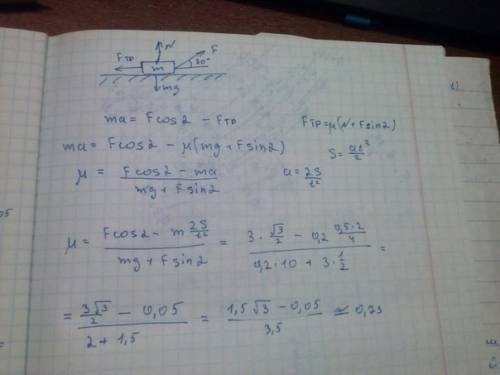 N F
Fтр m 30°
mg
ma = Fcos2 - Fтр Fтр = μ(N + Fsin2)
ma = Fcos2 - μ(mg + Fsin2) S = at²/2
μ = (Fcos2 - ma)/(mg + Fsin2) a = 2S/t²
μ = (Fcos2 - m 2S/t²)/(mg + Fsin2) = (3 · √3/2 - 0,2 0,5·2/4)/(0,2 · 10 + 3 · 1/2) =
= (3√3/2 - 0,05)/(2 + 1,5) = (1,5√3 - 0,05)/3,5 ≃ 0,73